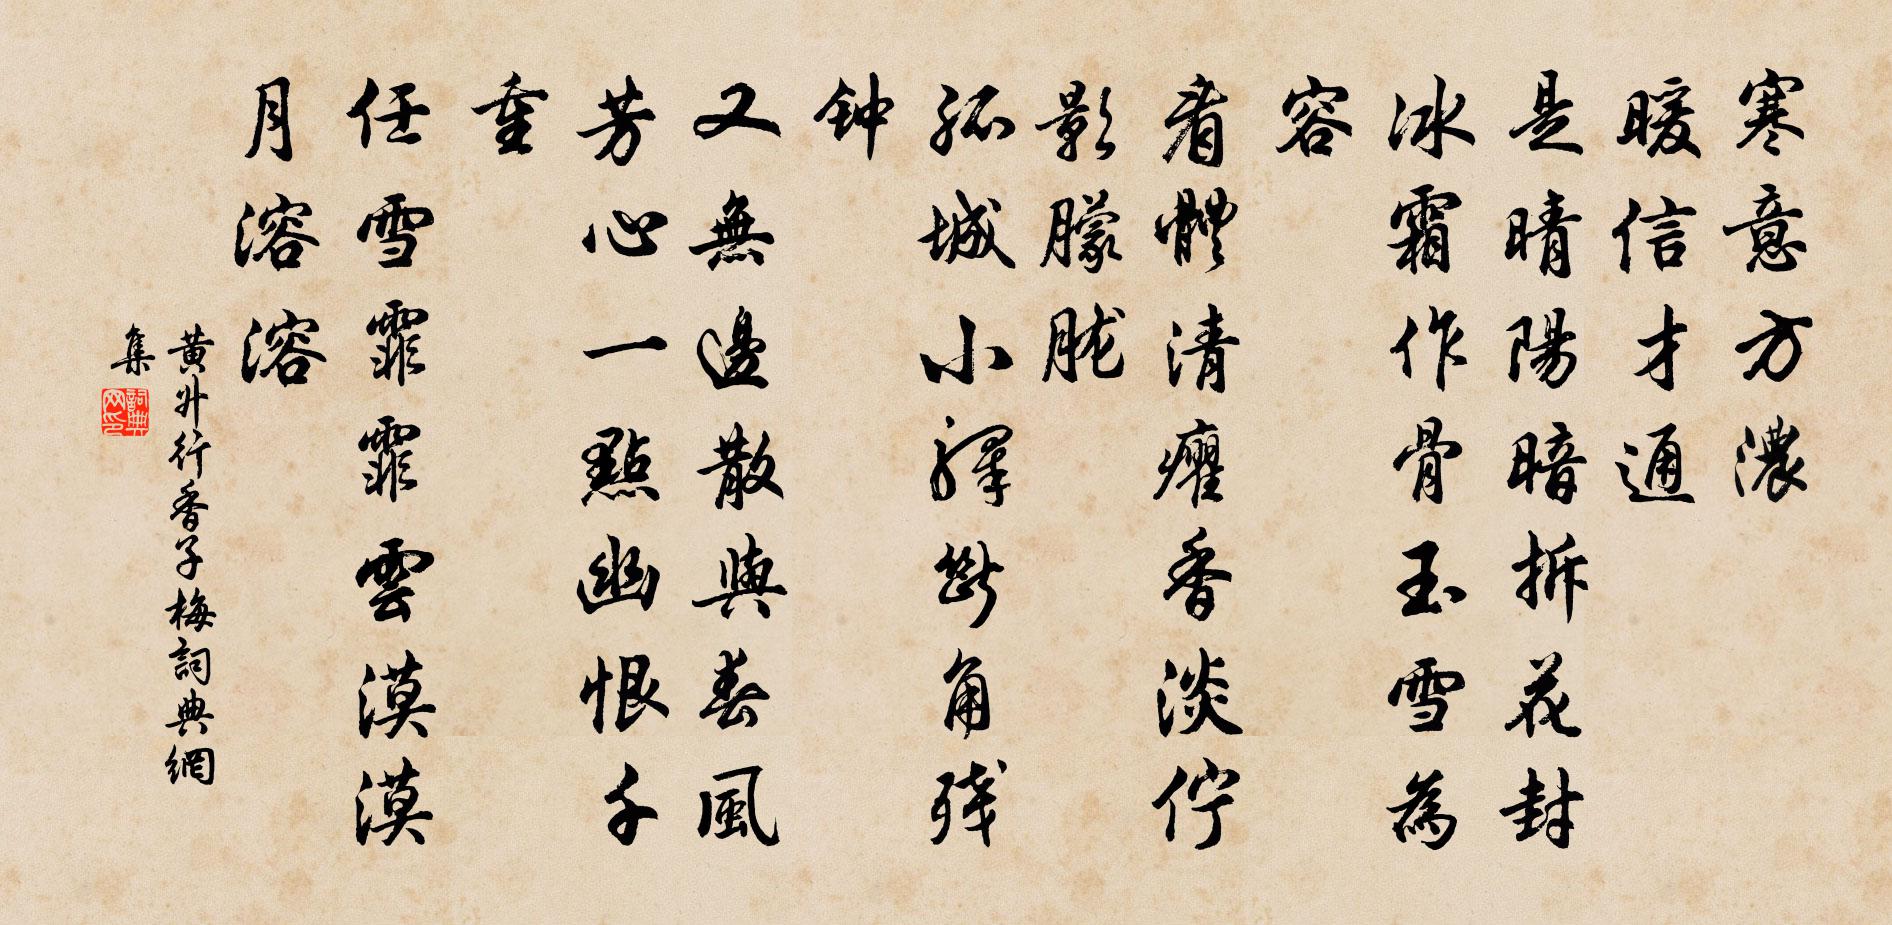 寒意方濃
暖信才通
是晴陽暗拆花封
冰霜作骨玉雪為
容
看體清癯香淡佇
影朦朧
孤城小驛斷角残
钟
又無邊散與春風
芳心一點幽恨千
重
任雪霏霏雲漠漠
月溶溶
黄升行香子梅詞典網
集
詞典网印